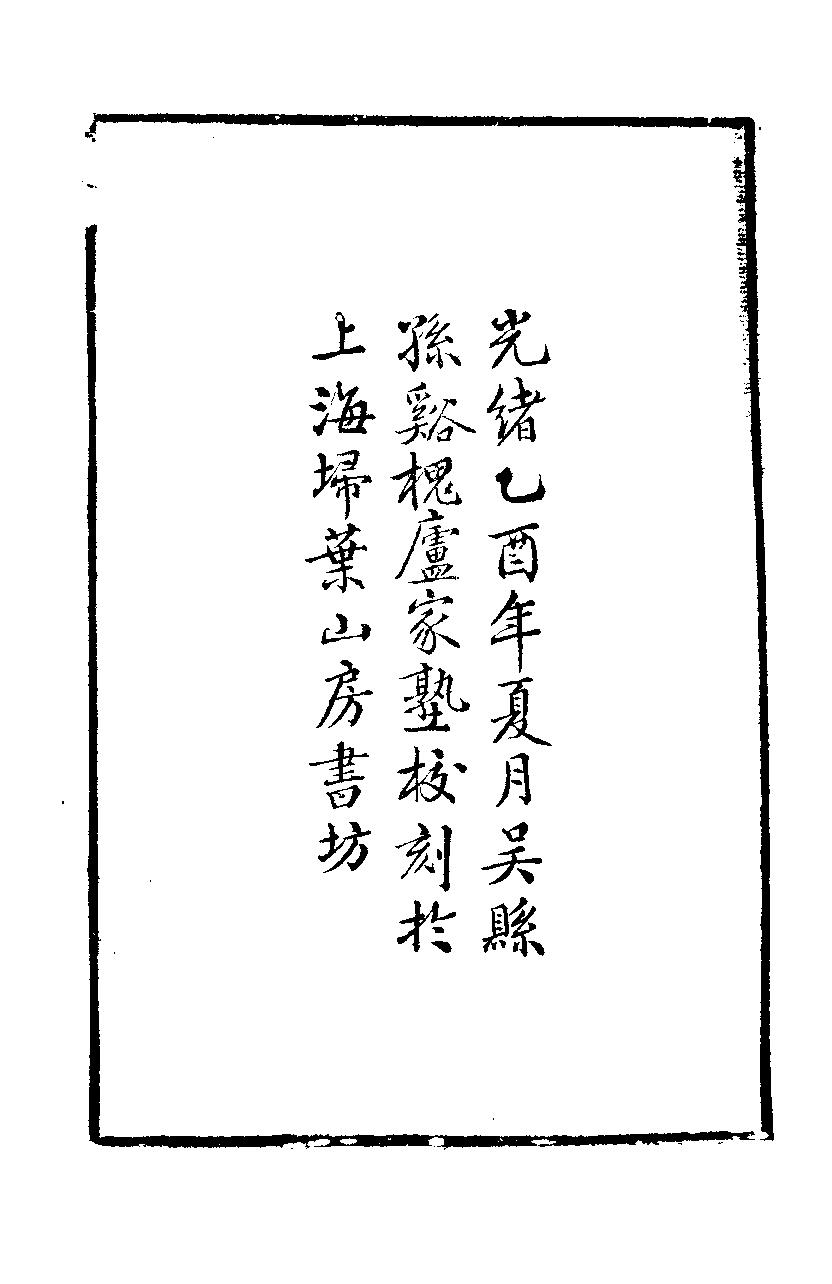 光緒乙酉年夏月吴縣
孫谿槐廬家塾校刻於
上海埽葉山房書坊